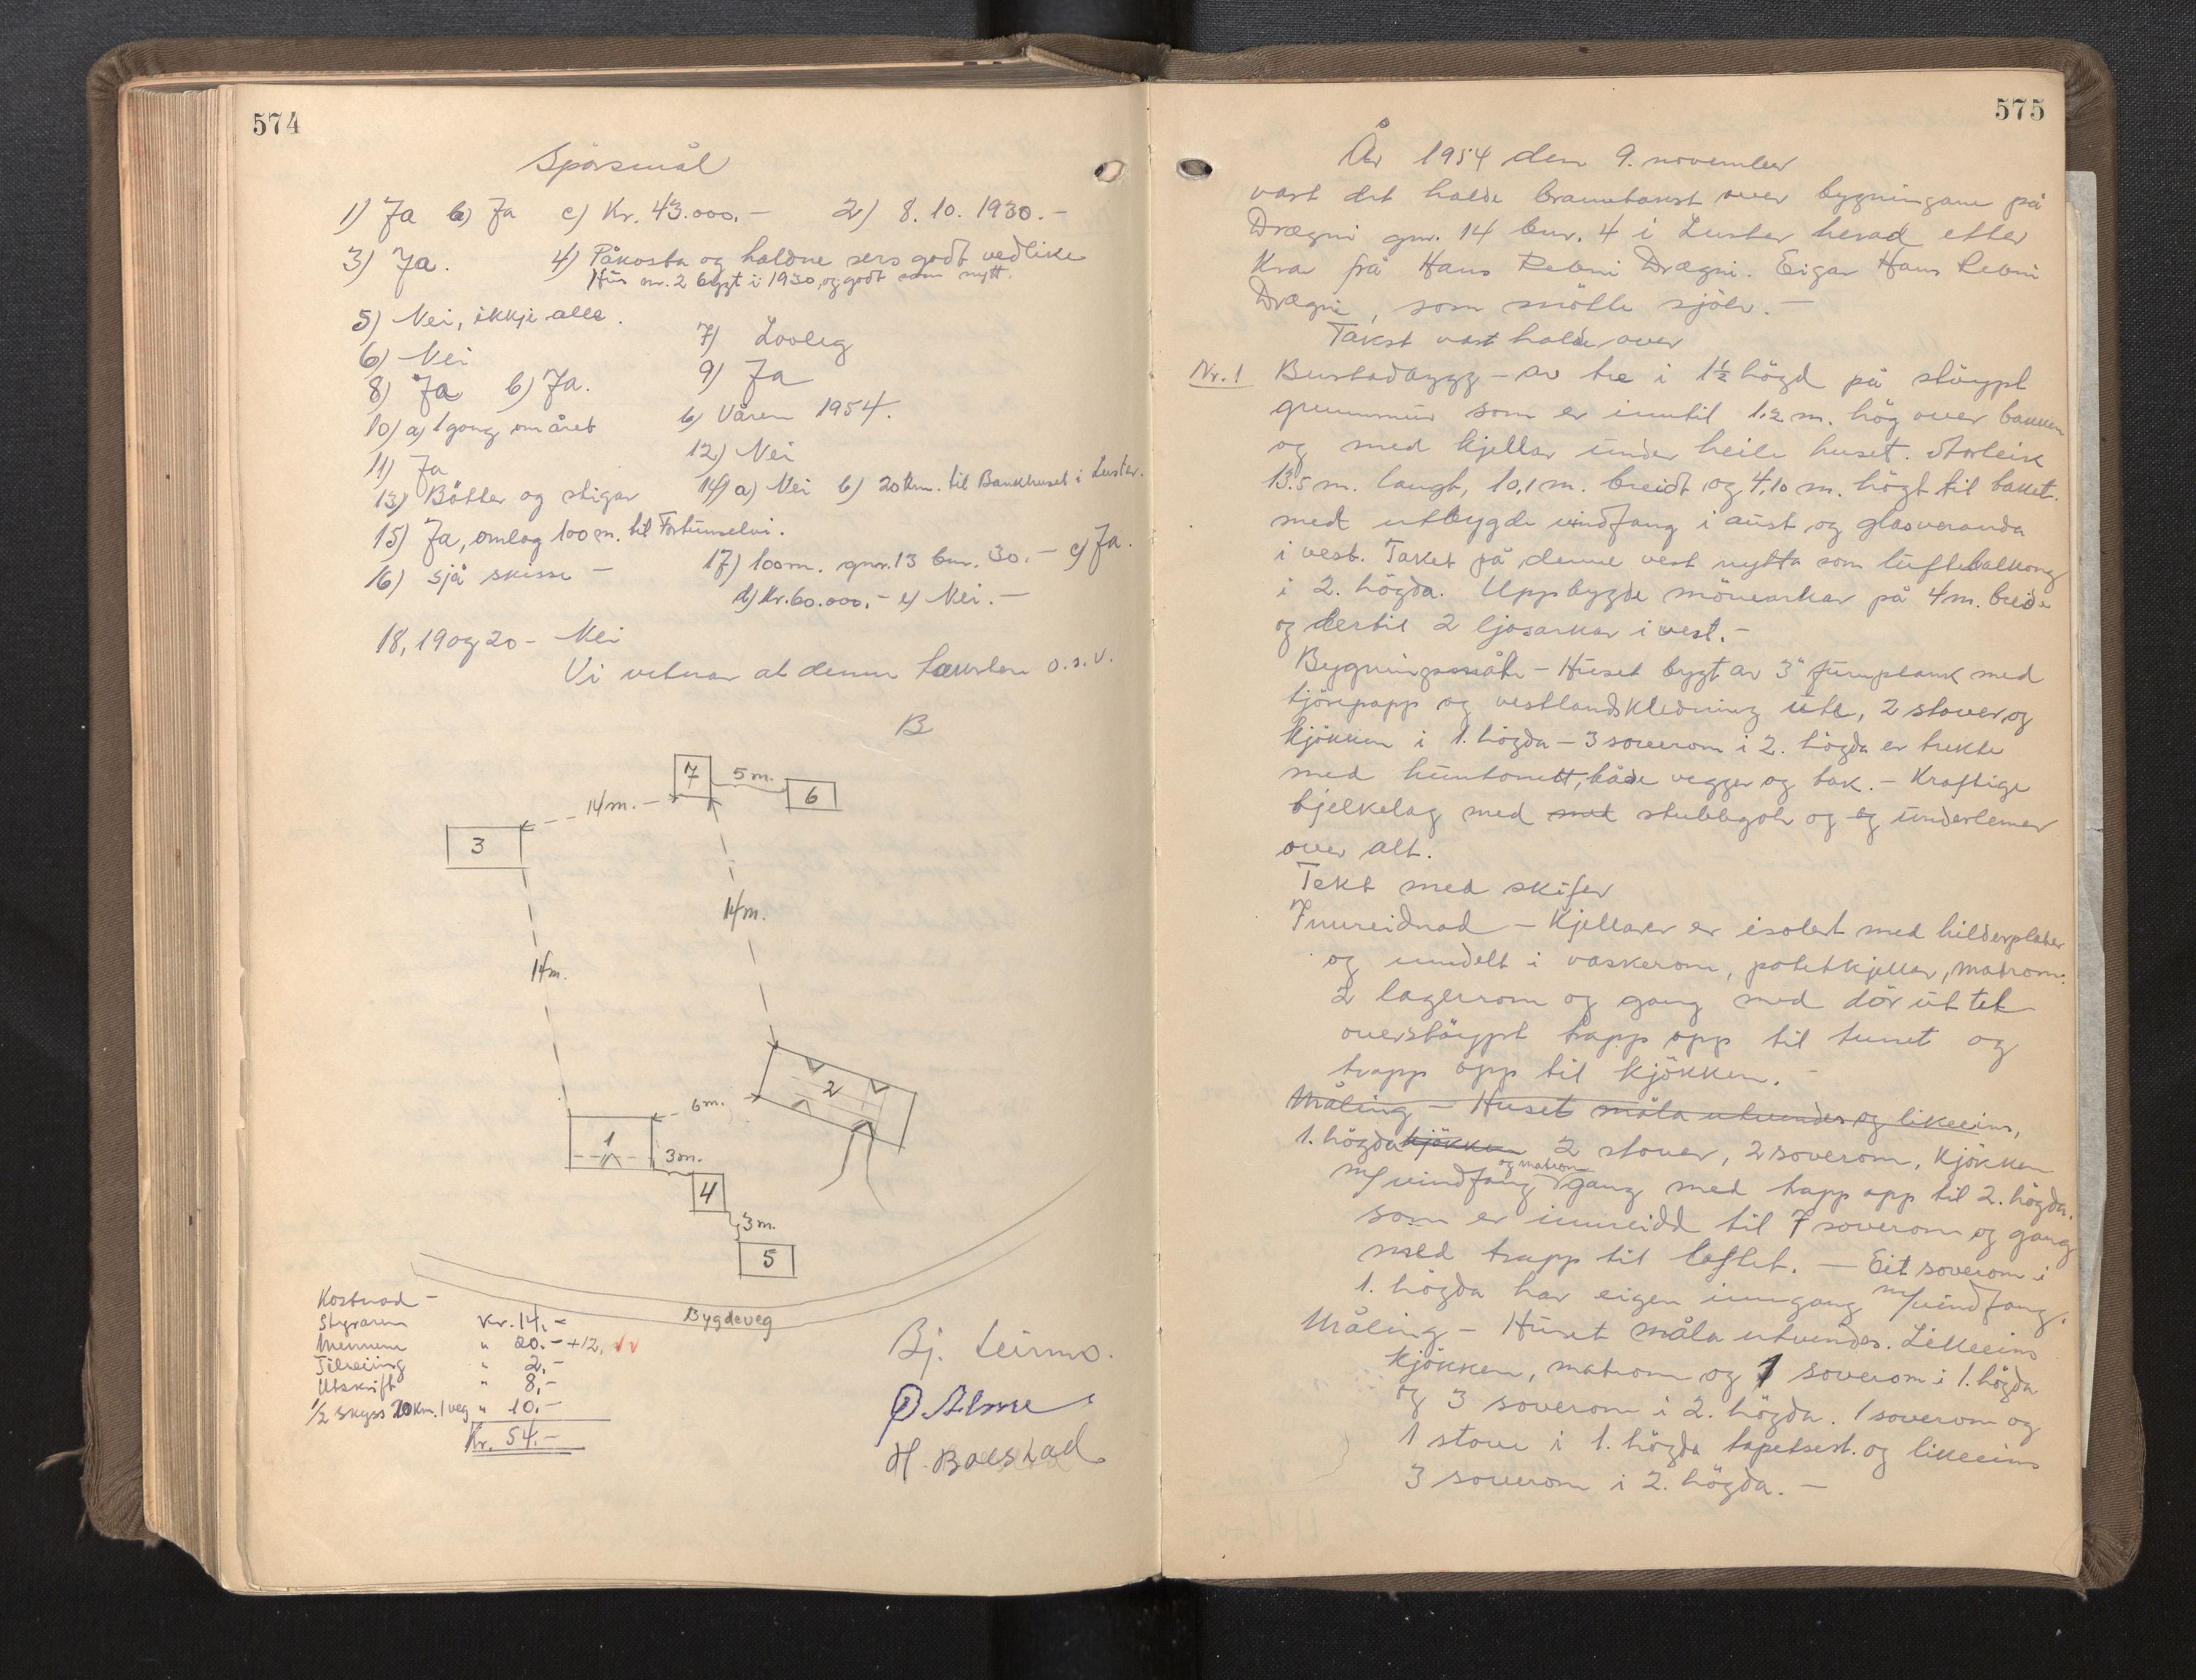 574
Spörsmål
1) Ja b) Ja c) Kr. 43.000.- 2) 8. 10. 1930.-
3) Ja. 4) Påkosta og haldne sers godt vedlike
Hus nr. 2 bygt i 1930, og godt som nytt.
5) Nei, ikkje alle.
6) Nei 7) Lovleg
8) Ja b) Ja. 9) Ja
10) a) 1 gong om året b) Våren 1954.
11) Ja 12) Nei
13) Bötter og stigar 14) a) Nei b) 20 km. til Bankhuset i Luster.
15) Ja, omlag 100 m. til Fortunselvi.
16) Sjå skisse - 17) 100 m. gnr. 13 bnr. 30. - c) Ja.
d) Kr. 60.000,- e) Nei. -
18, 19 og 20 - Nei
Vi vitnar at denne taksten o.s.v.
B
7 5 m. 6
14 m.
3
14 m.
14 m.
2
6 m.
1
3 m.
4
3 m.
5
Bygdeveg
Kostnad -
Styraren Kr. 14,-
Mennene " 20.- +12,
Tilreiing " 2,-
Utskrift " 8,-
1/2 skyss 20 km. 1 veg " 10.-
Kr. 54.-
Bj. Leirmo.
O. Alme
H. Bolstad
575
År 1954 den 9. november
vart det halde branntakst over bygningane på
Drægni gnr. 14 bnr. 4 i Luster herad etter
krav frå Hans Rebni Drægni. Eigar Hans Rebni
Drægni, som mötte sjölv. -
Takst vart halde over
Nr. 1 Bustadbygg - av tre i 1½ högd på stöypt
grunnmur som er inntil 1.2 m. hög over bakken
og med kjellar under heile huset. Storleik
13.5 m. langt, 10,1 m. breidt og 4,10 m. högt til taket.
med utbygde vindfang i aust og glasveranda
i vest. Taket på denne vert nytta som luftebalkong
i 2. högda. Uppbygde mönearkar på 4 m. breide
og dertil 2 ljosarkar i vest. -
Bygningsmåte - Huset bygt av 3" furuplank med
tjörepapp og vestlandskledning ute, 2 stover og
kjökken i 1. högda - 3 soverom i 2. högda er trekte
med huntonett, både vegger og tak. - Kraftige
bjelkelag med med stubbgolv og og underlemer
over alt.
Tekt med skifer
Innreidnad - Kjellaren er isolert med hilderplater
og inndelt i vaskerom, potetkjellar, matrom.
2 lagerrom og gang med dör ut til
overstöypt trapp opp til tunet og
trapp opp til kjökken. -
Måling - Huset måla utvendes og likeeins,
1. högda kjökken 2 stover, 2 soverom, kjökken
og matrom
m/vindfang gang med trapp opp til 2. högda.
som er innreidd til 7 soverom og gang
med trapp til loftet. - Eit soverom i
1. högda har eigen inngang m/vindfang.
Måling - Huset måla utvendes. Likeeins
kjökken, matrom og 1 soverom i 1. högda
og 3 soverom i 2. högda. 1 soverom og
1 stove i 1. högda tapetsert. og likeeins
3 soverom i 2. högda. -